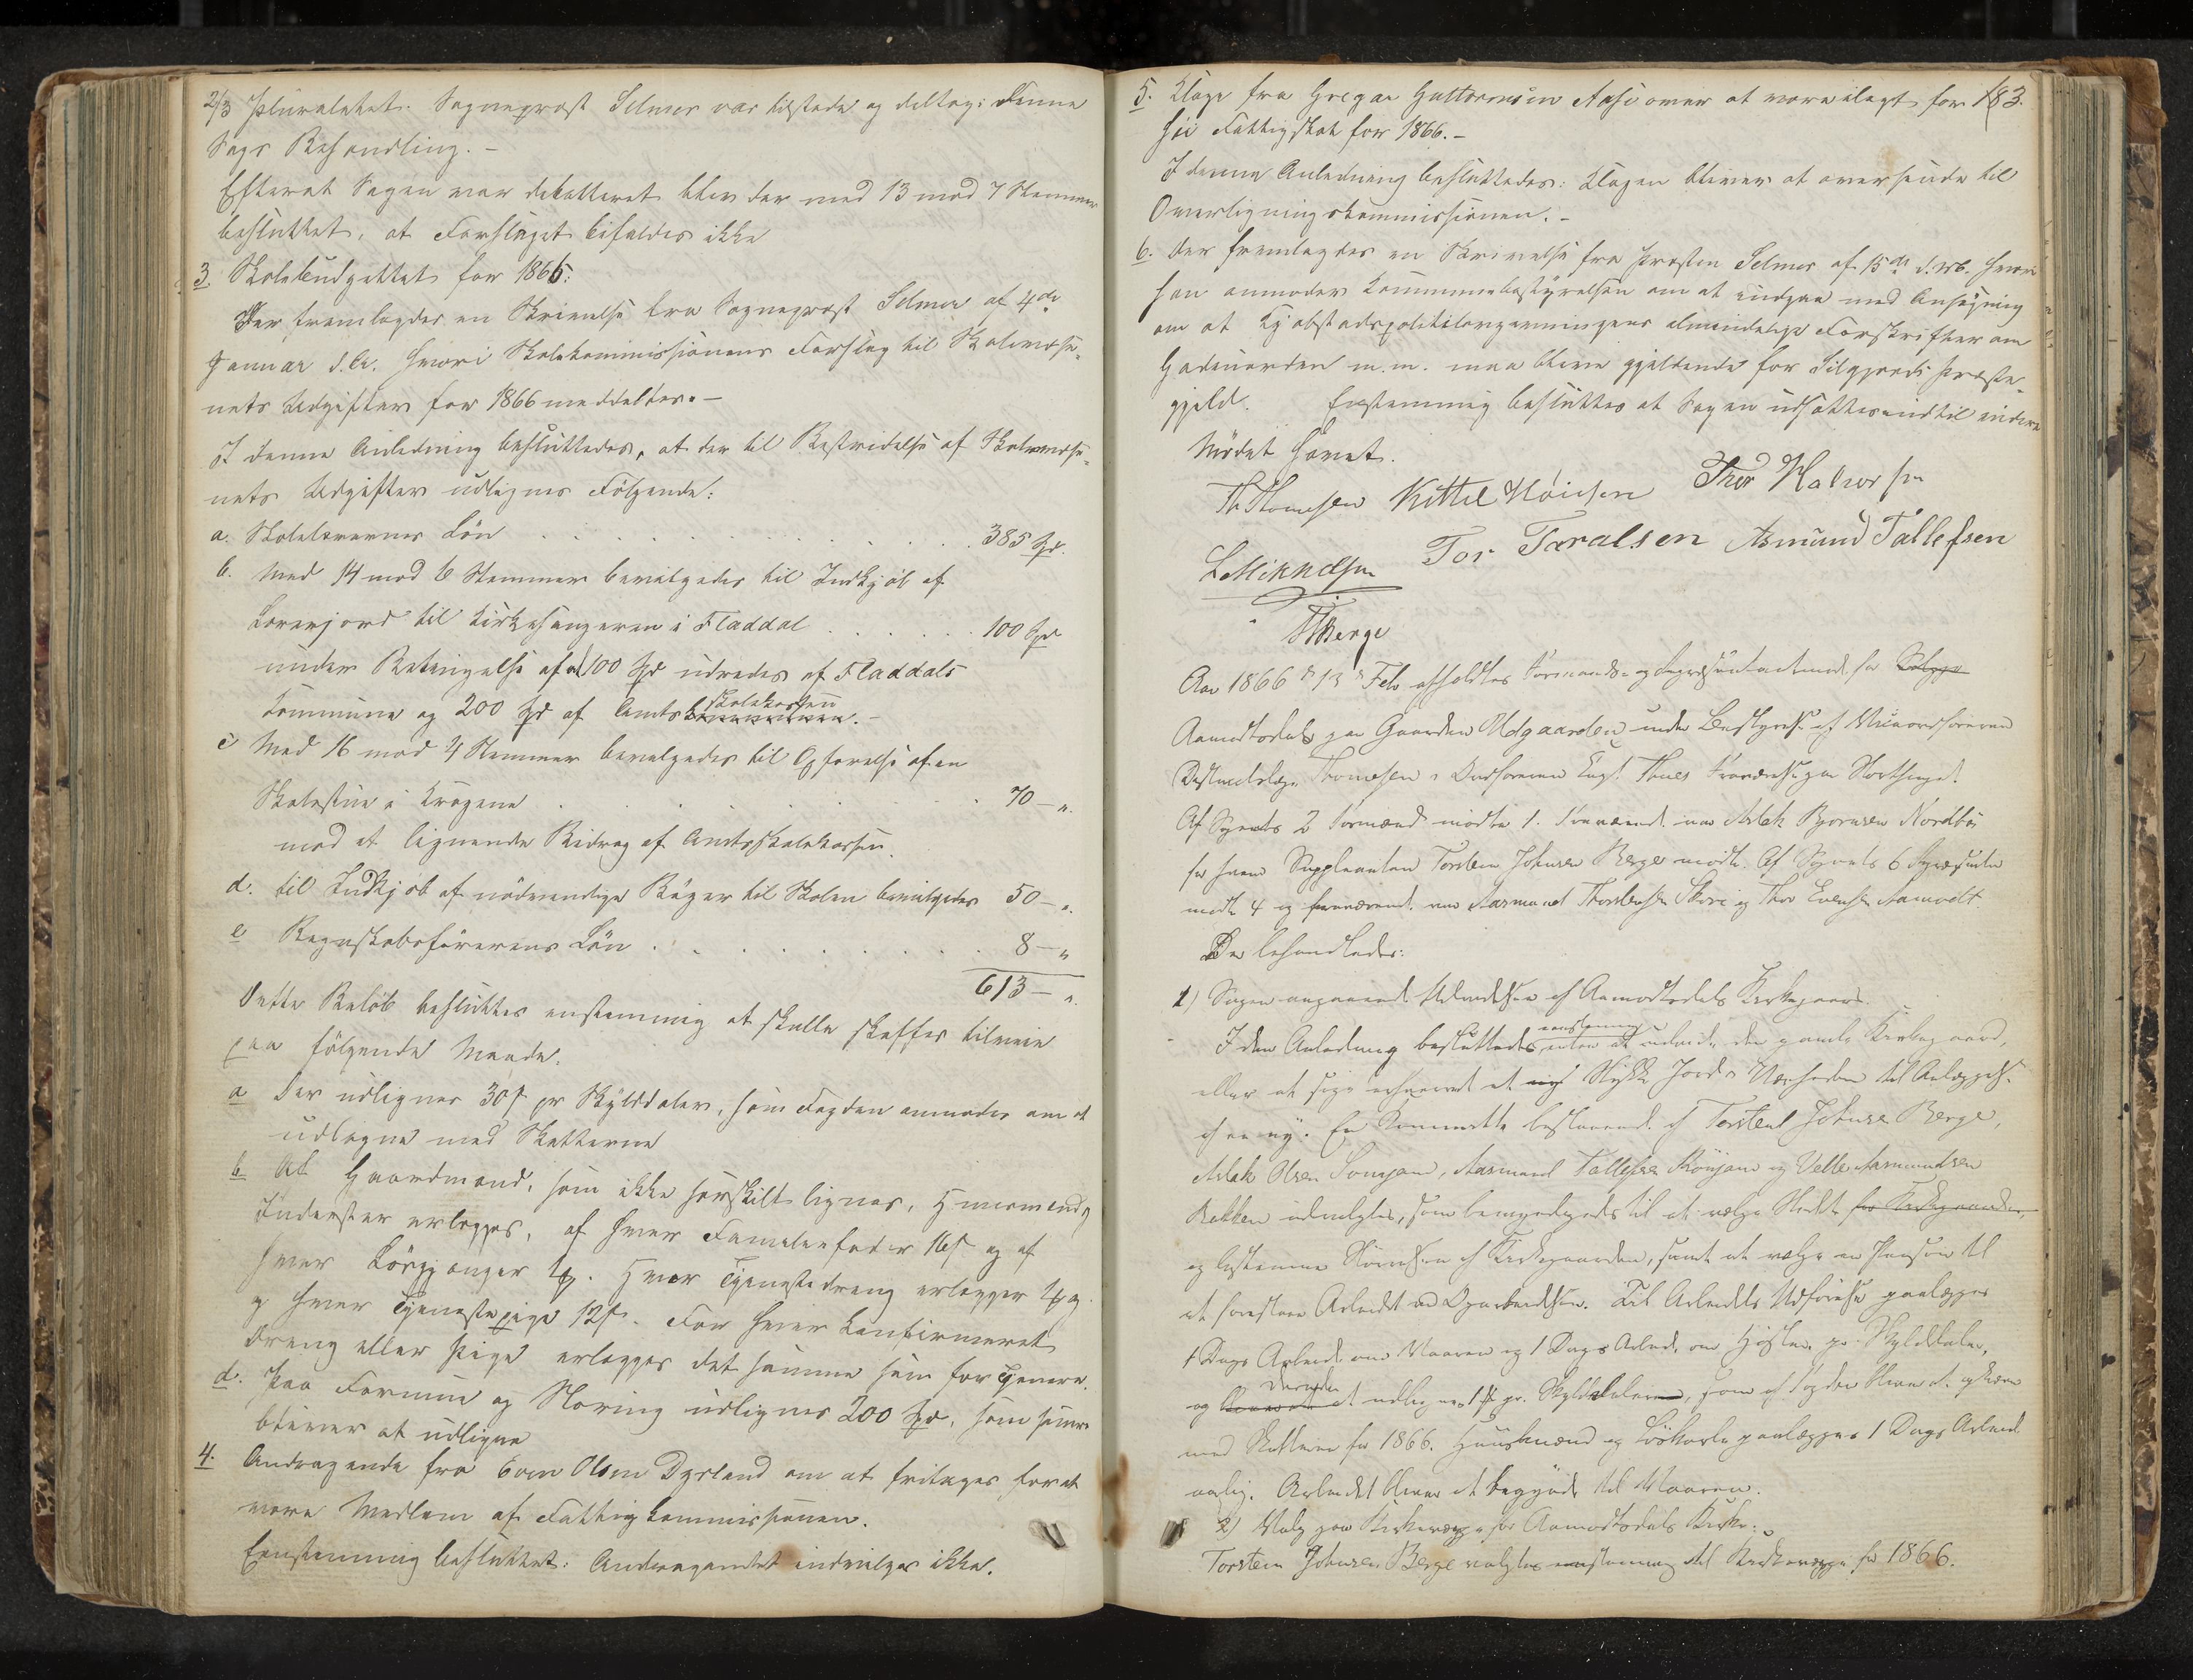 2/3 Pluralitet. Sogneprest Selmer var tilstede og deltog i denne
Sags Behandling. –
Efterat Sagen var debatteret blev der med 13 mod 7 Stemmer
besluttet, at Forslaget bifaldes ikke
3. Skolebudgettet for 1866:
Der fremlagdes en Skrivelse fra Sogneprest Selmer af 4de
Januar d.A. hvori Skolekommissionens Forslag til Skolevæse-
nets Udgifter for 1866 meddeltes. –
I denne Anledning besluttedes, at der til Bestridelse af Skolevæse-
nets Udgifter udlignes Følgende:
a. Skolelærernes Løn . . . . . . . . . 385 Spd.
b. Med 14 mod 6 Stemmer bevilgedes til Indkjøb af
Lærerjord til Kirkesangeren i Fladdal . . . . . . 100 Spd
under Betingelse af at 100 Spd udredes af Fladdals
Kommune og 200 Spd af Amtsskolekassen. –
c Med 16 mod 4 Stemmer bevilgedes til Opførelse af en
Skolestue i Krogene . . . . . . 70 – „.
mod et lignende Bidrag af Amtsskolekassen.
d. til Indkjøb af nödvendige Bøger til Skolen bevilgedes 50 – „.
e Regnskabsførerens Løn . . . . . . . 8 – „
613 – „.
Dette Beløb besluttes enstemmig at skulle skaffes tilveie
paa følgende Maade.
a Der udlignes 30 s pr Skylddaler, som Fogden anmodes om at
udligne med Skatterne
b Af Gaardmænd, som ikke særskilt lignes, Huusmænd og
Inderster erlægges, af hver Familiefader 16 s og af
hver Løsgjænger . Hver Tjenestedreng erlægger og
hver Tjenestepige 12 s. For hver Konfirmeret
Dreng eller Pige erlægges det samme som for Tjenere.
d. Paa Formue og Næring udlignes 200 Spd, som
bliver at udligne
4. Andragende fra Even Olsen Dyrland om at fritages for at
være Medlem af Fattigkommissionen.
Eenstemmig besluttet: Andragendet indvilges ikke.
5. Klage fra Gregar Guttormsen Aase over at være ilagt for 183.
høi Fattigskat for 1866. –
I denne Anledning besluttedes: Klagen bliver at oversende til
Overligningskommissionen. –
6. Der fremlagdes en Skrivelse fra Presten Selmer af 15de d. M. hvori
han anmoder Kommunebestyrelsen om at indgaa med Ansøgning
om at Kjøbstadspolitilovgivningens almindelige Forskrifter om
Gadeuorden m.m. maa blive gjældende for Silgjords Præste-
gjeld. Enstemmig besluttes at Sagen udsættes indtil videre
Mödet hævet.
Th Thomesen Kittil Höiesen Thor Halvorsen
L Mikkelsen Tor Taralsen Asmund Tallefsen
T Berge
Aar 1866 d 13 Feb afholdtes Formands- og Repræsentantmøde for
Aamodtsdals paa Gaarden Udgaarden under Bestyrelse af Viceordføreren
Distriktslæge Thomesen i Ordføreren Fraværelse paa Storthinget.
Af Sognets 2 Formænd mødte 1. Fraværende var Aslak Bjornsen Nordbø
for hvem Suppleanten Torsten Johnsen Berge mødte. Af Sognets 6 Repræsentanter
mødte 4 og fraværende var Aasmund Thorstensen Skori og Thor Evensen Aamodt.
Der behandledes:
1) Sagen angaaende Udvidelsen af Aamodtsdals Kirkegaard.
I den Anledning besluttedes eenstemmig enten at udvide den gamle Kirkegaard,
eller at søge erhvervet et nyt Stykke Jord i Nærheden til Anlæggelse
af en ny. En Committe bestaaende af Torsten Johnsen Berge,
Aslak Olsen , Aasmund Tallefsen Rönjom og Velle Aasmundsen
Bakken udvalgtes, som bemyndigedes til at vælge Stedet for Kirkegaarden,
og bestemme Størrelsen af Kirkegaarden, samt at vælge en Person til
at forestaae Arbeidet ved Oparbeidelsen. Til Arbeidets Udførelse paalægges
1 Dags Arbeide om Vaaren og 1 Dags Arbeide om Høsten pr. Skylddaler,
og desuden at udlignes 1 pr. Skylddaleren, som af Fogden bliver at opkræve
med Skatterne for 1866. Huusmænd og Løskarle paalægges 1 Dags Arbeide
aarlig. Arbeidet bliver at begynde til Vaaren.
2) Valg paa Kirkeværge for Aamodtsdals Kirke:
Torstein Johnsen Berge valgtes enstemmig til Kirkeværge for 1866.